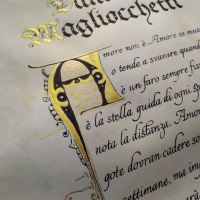 Magliocchetti
Amore non è Amore se mu
o tende a svanire quand
è un faro sempre fiss
è la stella guida di ogni s
nota la distanza. Amor
gote dovran cadere so
settimane, ma im